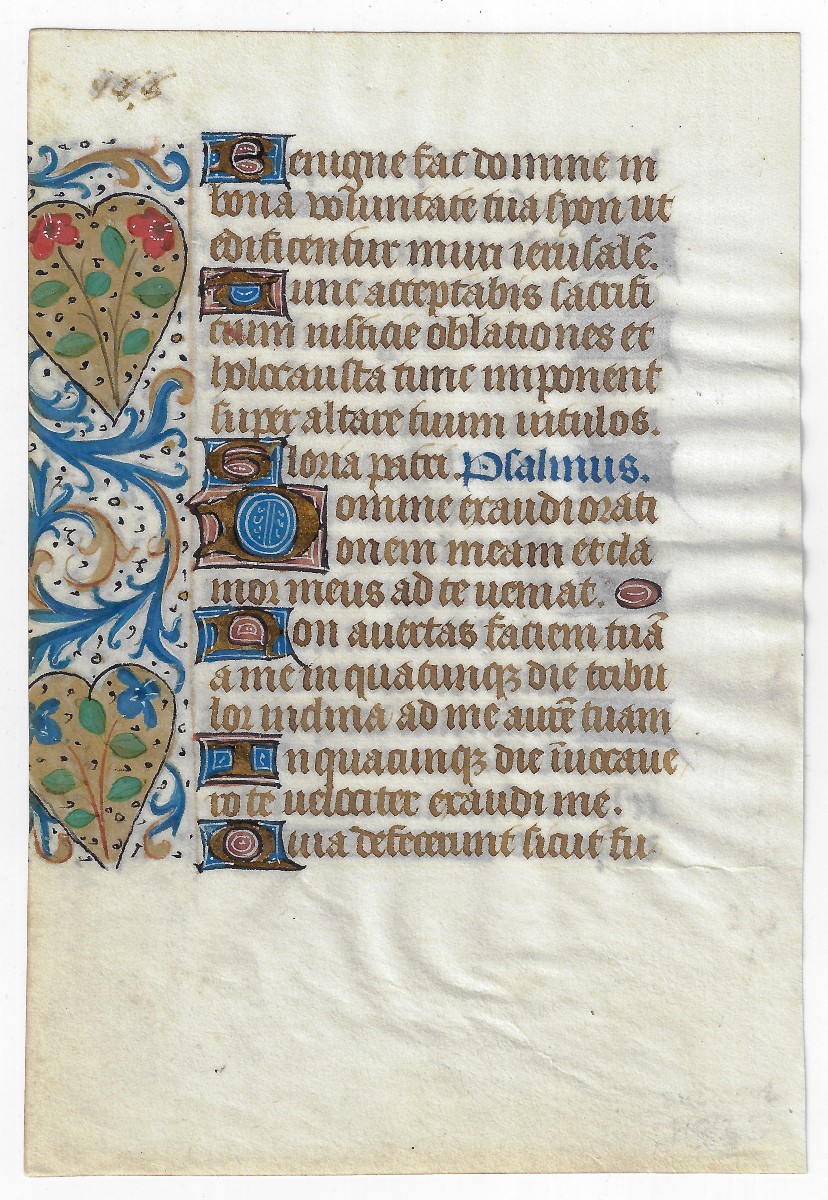 Benigne fac domine in
bona volũntate tua syon ut
edificentur muri ierusalẽ.
Tunc acceptabis sacrifi
cium iusticie oblationes et
holocausta tunc imponent
super altare tuum vitulos.
Gloria patri. Psalmus.
Domine exaudi orati
onem meam et cla
mor meus ad te veniat.
Non avertas faciem tuã
a me in quacunqꝫ die tribu
lor inclina ad me aurẽ tuam
In quacunqꝫ die ĩuocave
ro te velociter exaudi me.
Quia defecerunt sicut fu